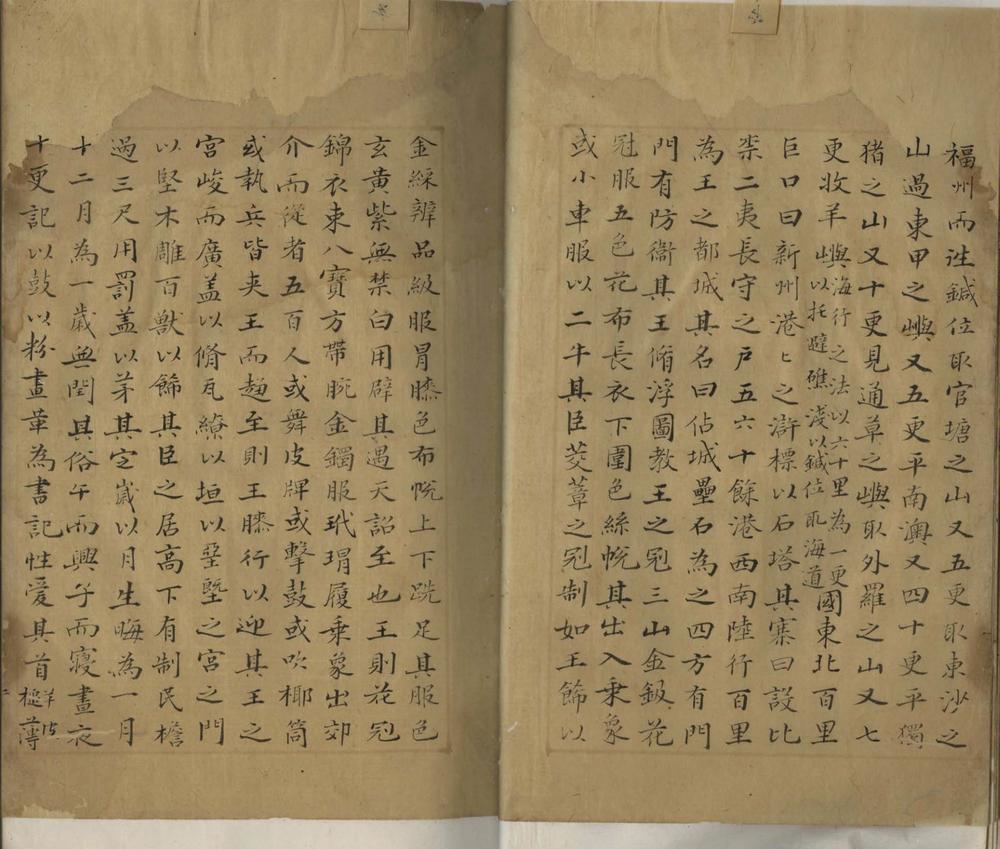 福州而徃鍼位取官塘之山又五更取東沙之
山過東甲之嶼又五更平南澳又四十更平獨
猪之山又十更見通草之嶼取外羅之山又七
更收羊嶼海行之法以六十里為一更以托避礁淺以鍼位取海道國東北百里
巨口曰新州港〻之滸標以石塔其寨曰設比
柰二夷長守之戶五六十餘港西南陸行百里
為王之都城其名曰佔城壘石為之四方有門
門有防衛其王脩浮圖教王之冠三山金鈒花
冠服五色花布長衣下圍色絲帨其出入乗象
或小車服以二牛其臣茭葦之冠制如王飾以
金綵辨品級服冐膝色布帨上下跣足其服色
玄黄紫無禁白用辟其遇天詔至也王則花冠
錦衣束八寶方帶腕金鐲服玳瑁履乗象出郊
介而從者五百人或舞皮牌或擊鼓或吹椰筒
或執兵皆夹王而趨至則王膝行以迎其王之
宮峻而廣盖以脩瓦繚以垣以堊塈之宮之門
以堅木雕百獸以飾其臣之居高下有制民檐
過三尺用罰盖以茅其定歲以月生晦為一月
十二月為一歲無閏其俗午而興子而寢晝夜
十更記以鼓以粉畫革為書記性愛其首羊皮槌薄